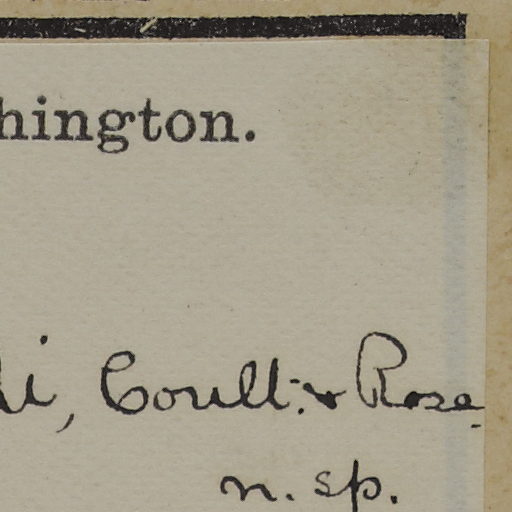 hington.
i, Coult. & Rose.
n. sp.